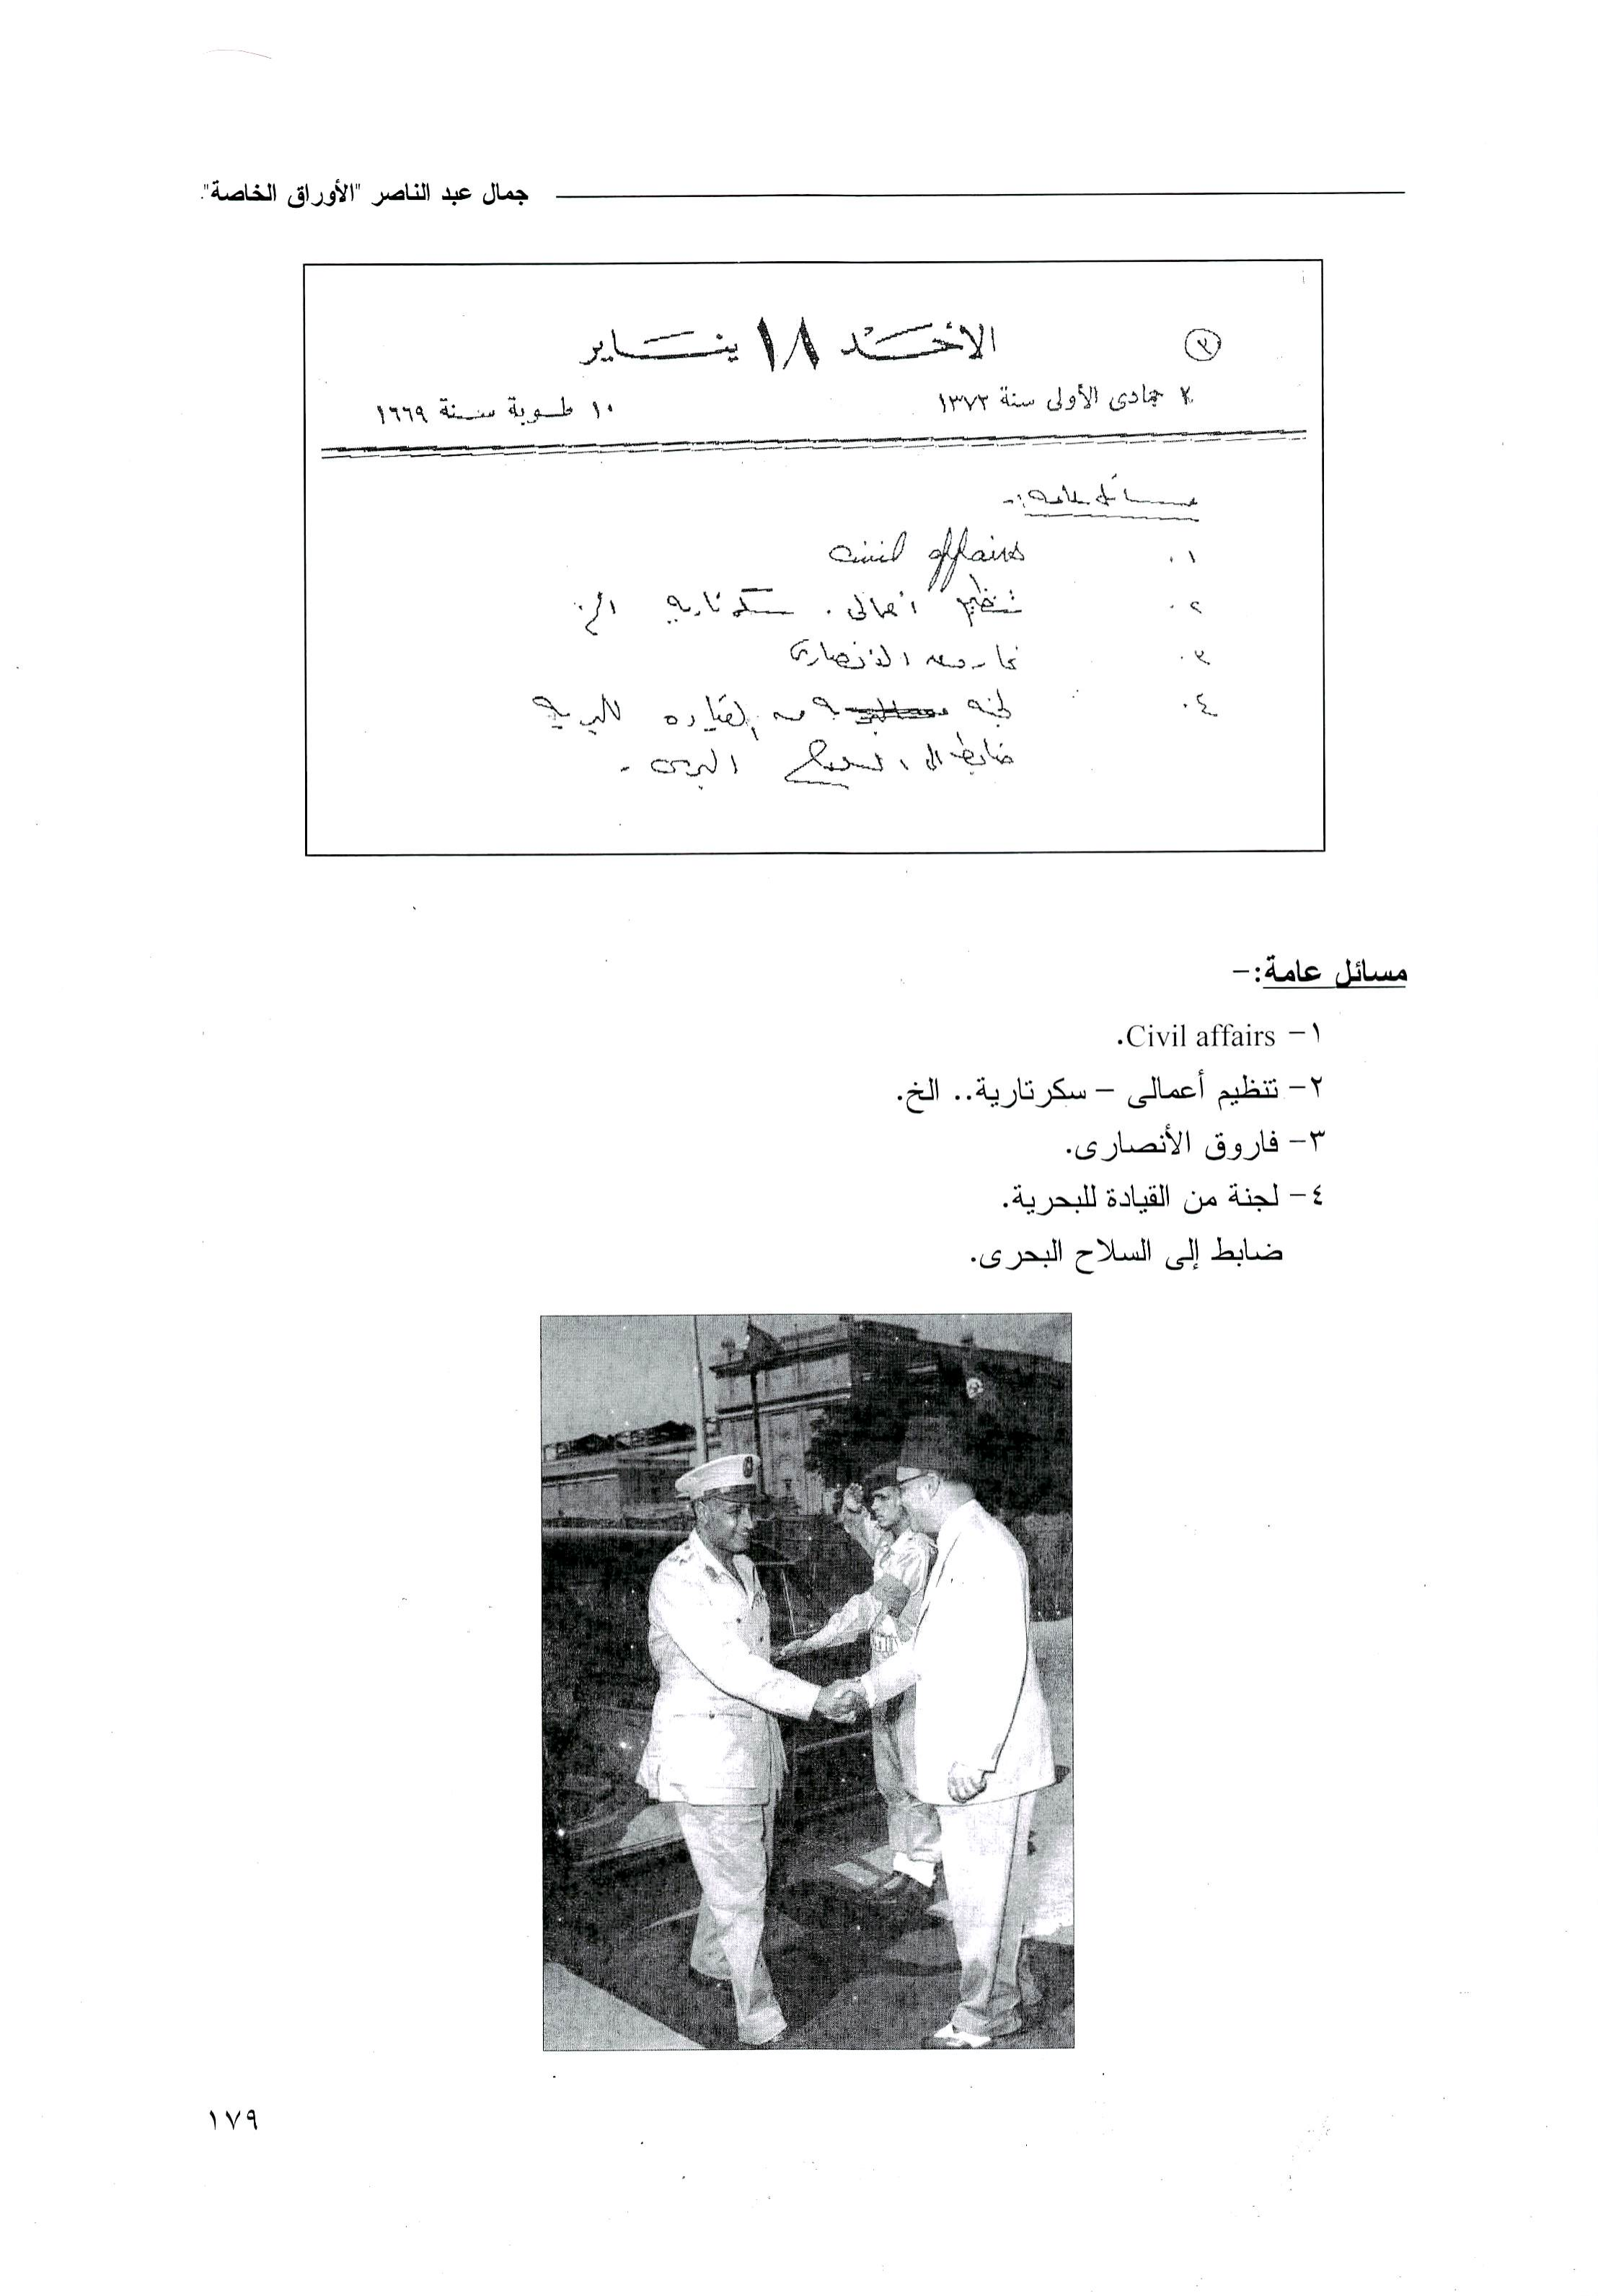 جمال عبد الناصر "الأوراق الخاصة".
٣
الأحد ١٨ يناير
٢ جمادى الأولى سنة ١٣٧٢
١٠ طوبة سنة ١٦٦٩
مسائل عامه :-
١. Civil affairs
٢. تنظيم أعمالى . سكرتاريه الخ.
٣. فاروق الأنصارى
٤. لجنه من القياده للبحريه
ضابط الى السلاح البحرى .
مسائل عامة:-
١- Civil affairs.
٢- تنظيم أعمالى - سكرتارية.. الخ.
٣- فاروق الأنصارى.
٤- لجنة من القيادة للبحرية.
ضابط إلى السلاح البحرى.
١٧٩